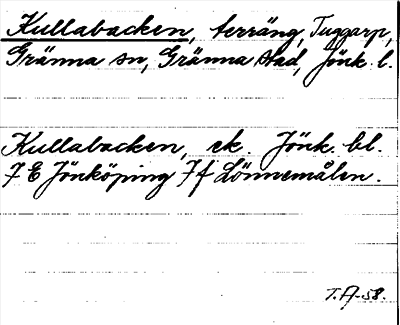 Kullabacken, terräng, Tuggarp,
Gränna sn, Gränna stad, Jönk. l.
Kullabacken, ek. Jönk. bl.
7 E Jönköping 7 f Lönnemålen.
T.A-58.